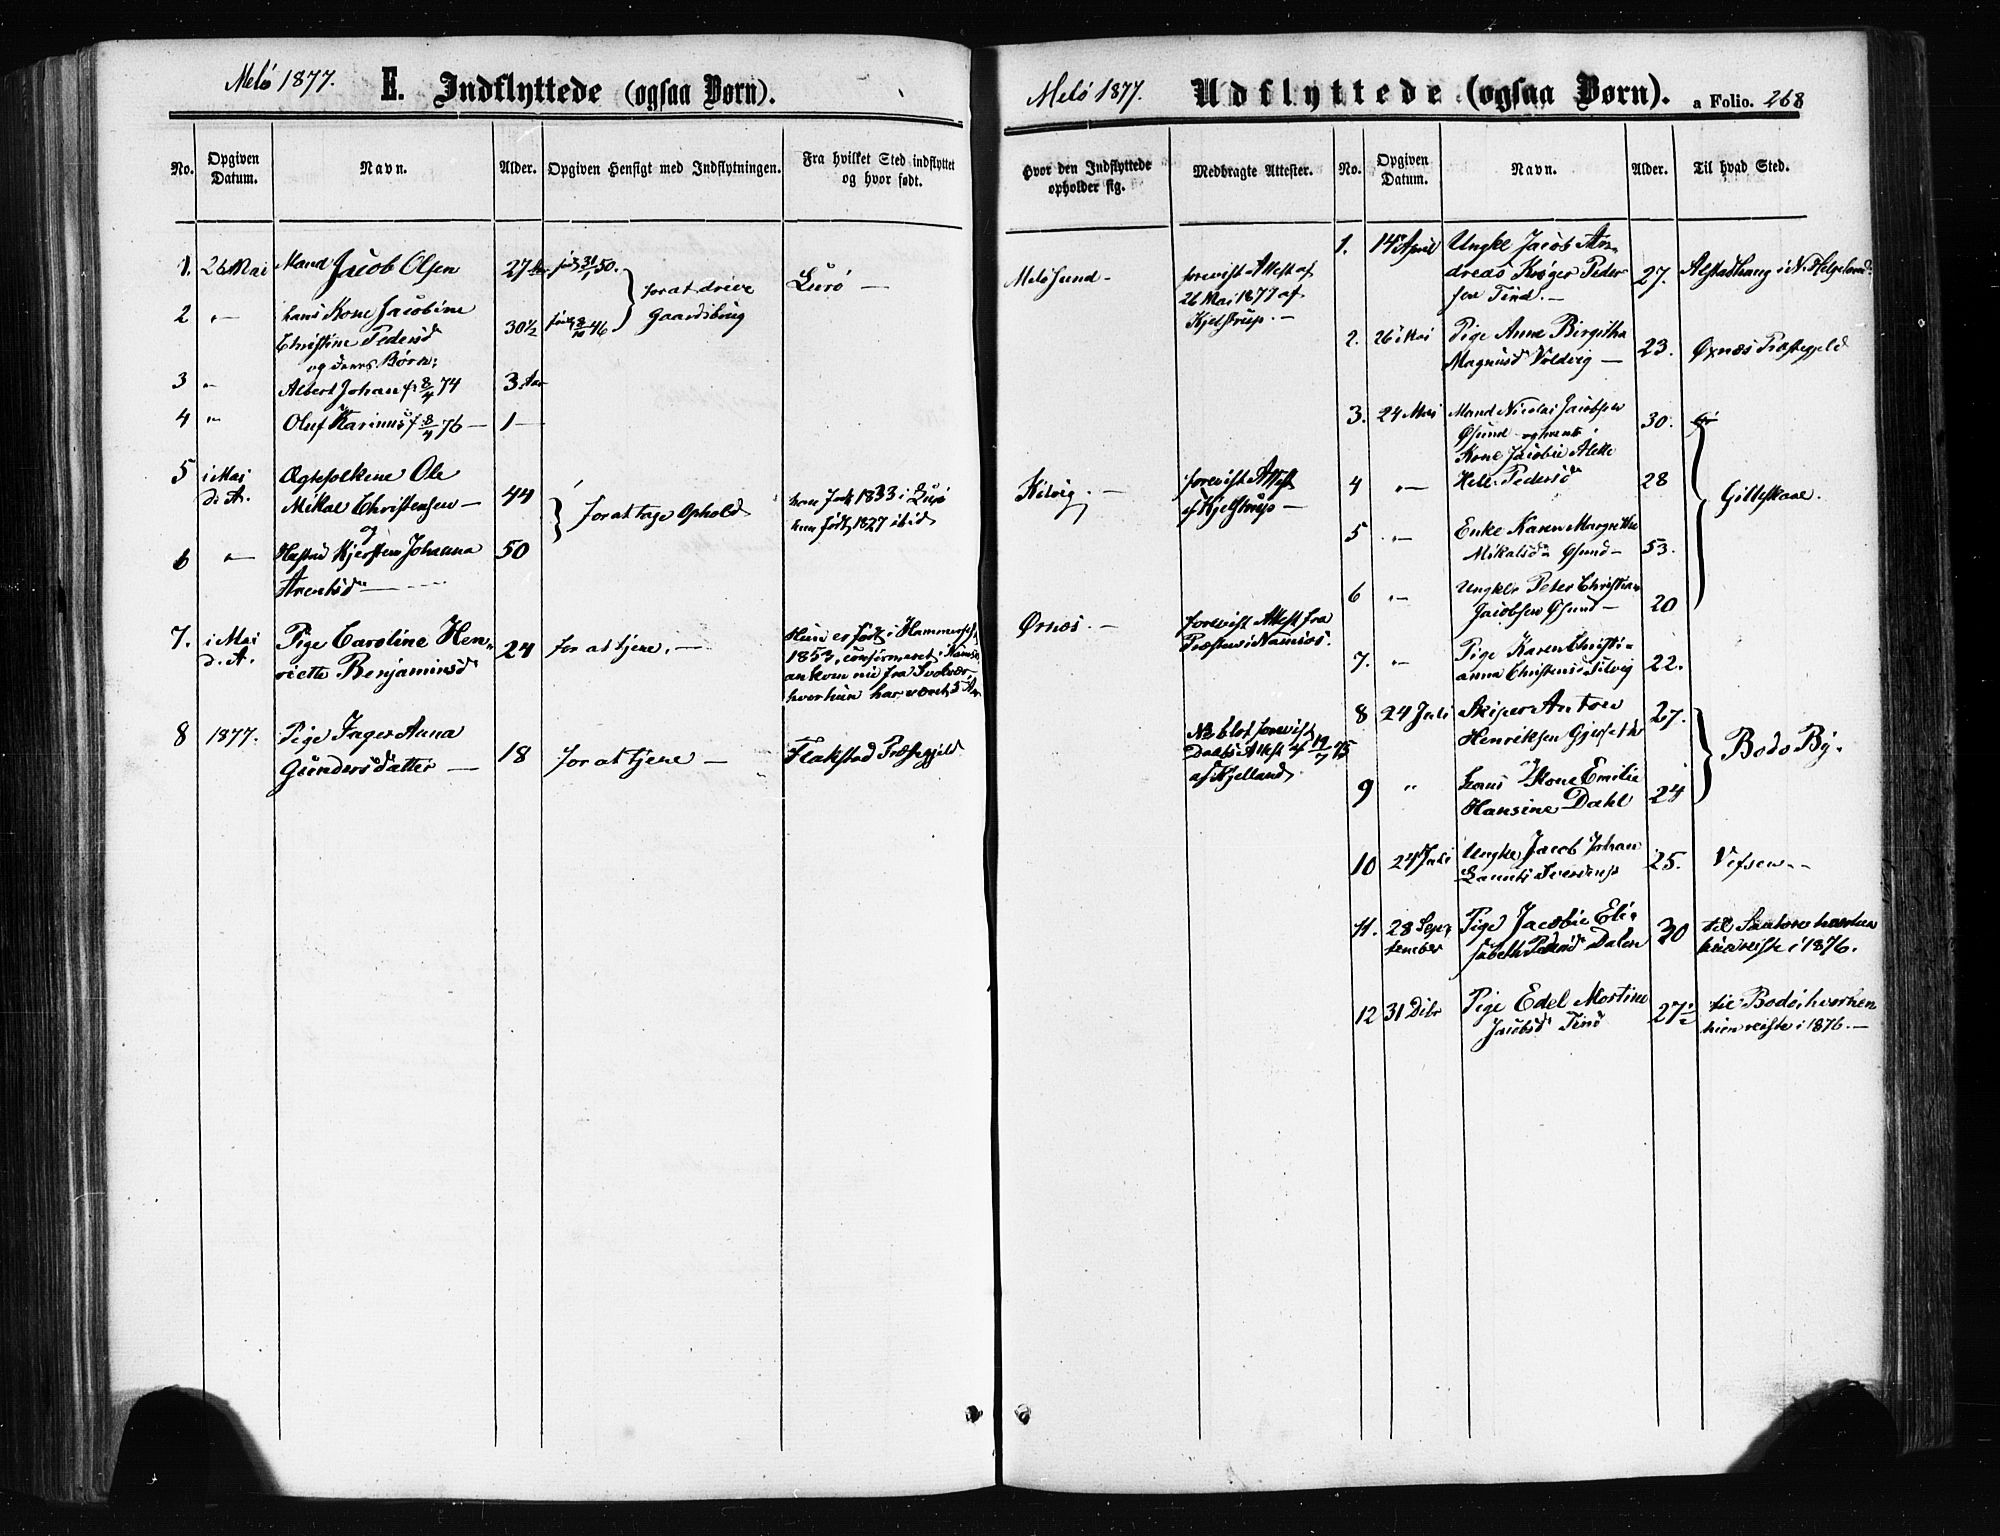 Melö 1877.
E. Indflyttede (ogsaa Børn).
No.
Opgiven Datum.
Navn.
Alder.
Opgiven Hensigt med Indflytningen.
Fra hvilket Sted indflyttet og hvor født.
1. 26 Mai Mand Jacob Olsen 27 født 31/1 50. for at drive Gaardsbrug Lurö —
2 " — hans Kone Jacobine
Christine Pedersd 30½ født 8/10 46
og deres Børn:
3 " Albert Johan f. 8/4 74 3 Aar
4 " Oluf Karinus f 8/4 76 — 1 —
5 i Mai d. A. Ægtefolkene Ole
Mikal Christensen — 44 for at tage Ophold han født 1833 i Lurö
og hun født 1827 ibid
6 " — Hustru Kjersten Johanna 50
Arentsd —
7. i Mai d. A. Pige Caroline Hen-
riette Benjaminsd 24 for at tjene. —
Hun er født i Hammerfest
1853, confirmeret i Namsos
ankom nu fra Svolvær
hvor hun har været 5 Aar
8 1877. Pige Inger Anna
Gundersdatter — 18 for at tjene — Flakstad Præstegjeld
Melö 1877.
Udflyttede (ogsaa Børn).
a Folio. 268
Hvor den Indflyttede opholder sig.
Medbragte Attester.
No.
Opgiven Datum.
Navn.
Alder.
Til hvad Sted.
Melösund —
forevist Attest af
26 Mai 1877 af
Kjelstrup. —
Kilvig. —
forevist Attest
af Kjelstrup —
Ørnes. —
forevist Attest fra
Præsten i Namsos.
No 8 blot forevist
Daabs Attest af 19/7 75
af Kjelland.
1. 14 April Ungkl Jacob An-
dreas Krøger Peder
sen Tind. — 27. Alstadhaug i N. Helgeland.
2. 26 Mai Pige Anne Birgitha
Magnusd Voldvig — 23. Øxnes Præstegjeld
3. 24 Mai Mand Nicolai Jacobsen
Øsund og hans 30.
Kone Jacobine Alette
4 " — Pedersd 28 Gilleskaal.
5 " — Enke Karen Margrethe
Mikalsd Øsund — 53.
6 " — Ungklr Peter Christian
Jacobsen Øsund — 20
7. " — Pige Karen Christi-
anna Christensd Kilvig 22.
8 24 Juli Skiper Anton
Henriksen 27. Bodø By.
9 " hans Kone Emilie
Hansine Dahl 24
10 24 Juli Ungkl Jacob Johan
25. Vefsen —
11. 28 Sep-
tember Pige Jacobine Eli-
sabeth Pedersd Dalen 30 til hvorhen
hun reiste i 1876.
12 31 Dcbr Pige Edel Mortine
Jacobsd Tind 27½ til Bodö hvorhen
hun reiste i 1876. —